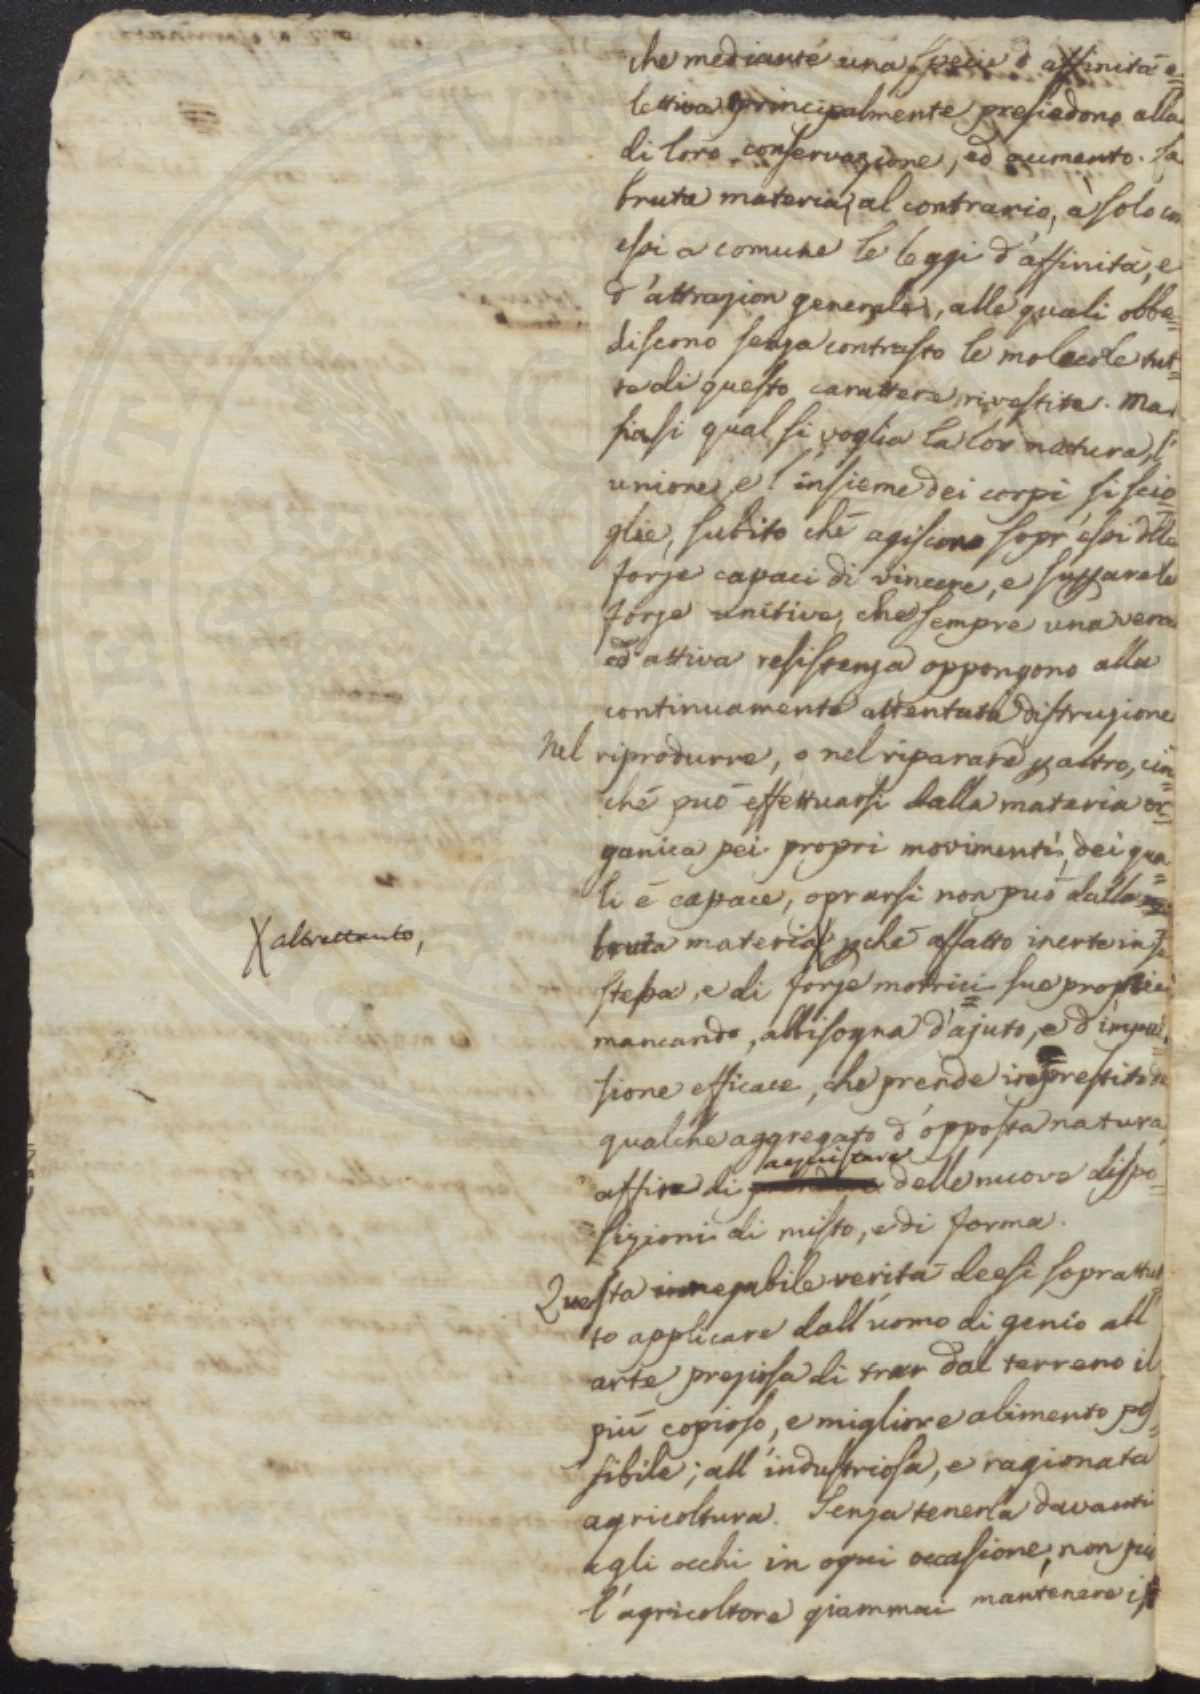 che mediante una specie d'affinità e=
lettiva principalmente presiedono alla
di loro conservazione, ed aumento. La
bruta materia, al contrario, à solo con
essi a comune le leggi d'affinità, e
d'attrazion generale, alle quali obbe=
discono senza contrasto le molecole tut=
te di questo carattere rivestite. Ma
siasi qual si voglia la lor natura, l'
unione, e l'insieme dei corpi si scio=
glie, subito chè agiscono sopr'essi delle
forze capaci di vincere, e superare le
forze unitive, che sempre una vera
ed attiva resistenza oppongono alla
continuamente attentata distruzione
Nel riprodurre, o nel riparare però altro, ciò=
chè può effettuarsi dalla materia or=
ganica pei propri movimenti, dei qua=
li è capace, oprarsi non può dalla
X altrettanto,
bruta materia X perchè affatto inerte in se
stessa, e di forze motrici sue proprie
mancando, abbisogna d'ajuto, e d'impul=
sione efficace, che prende in prestito da
qualche aggregato d'opposta natura,
affine di acquistare delle nuove dispo=
sizioni di misto, e di forma.
Questa innegabile verità deesi soprattut=
to applicare dall'uomo di genio all'
arte preziosa di trar dal terreno il
più copioso, e migliore alimento pos=
sibile; all'industriosa, e ragionata
agricoltura. Senza tenerla davanti
agli occhi in ogni occasione, non può
l'agricoltore giammai mantenere